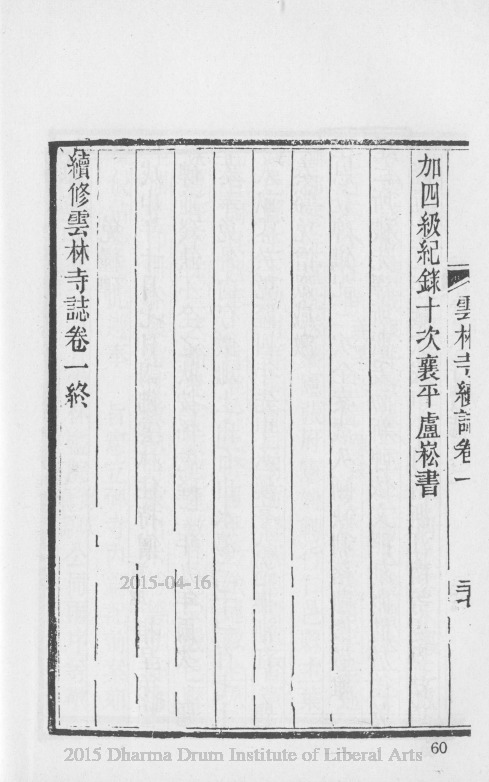 加四級紀錄十次襄平盧崧書
續修雲林寺誌卷一終
雲林寺續誌卷一
2015-04-16
60
2015 Dharma Drum Institute of Liberal Arts